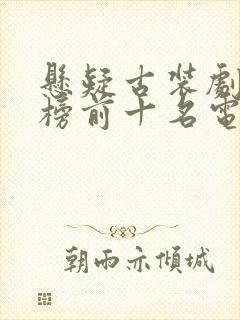 懸疑古裝劇
榜前十名電
朝雨亦傾城